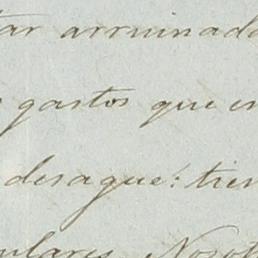 tar arruinada
gastos que en
desague: tien
ulares. Nosot